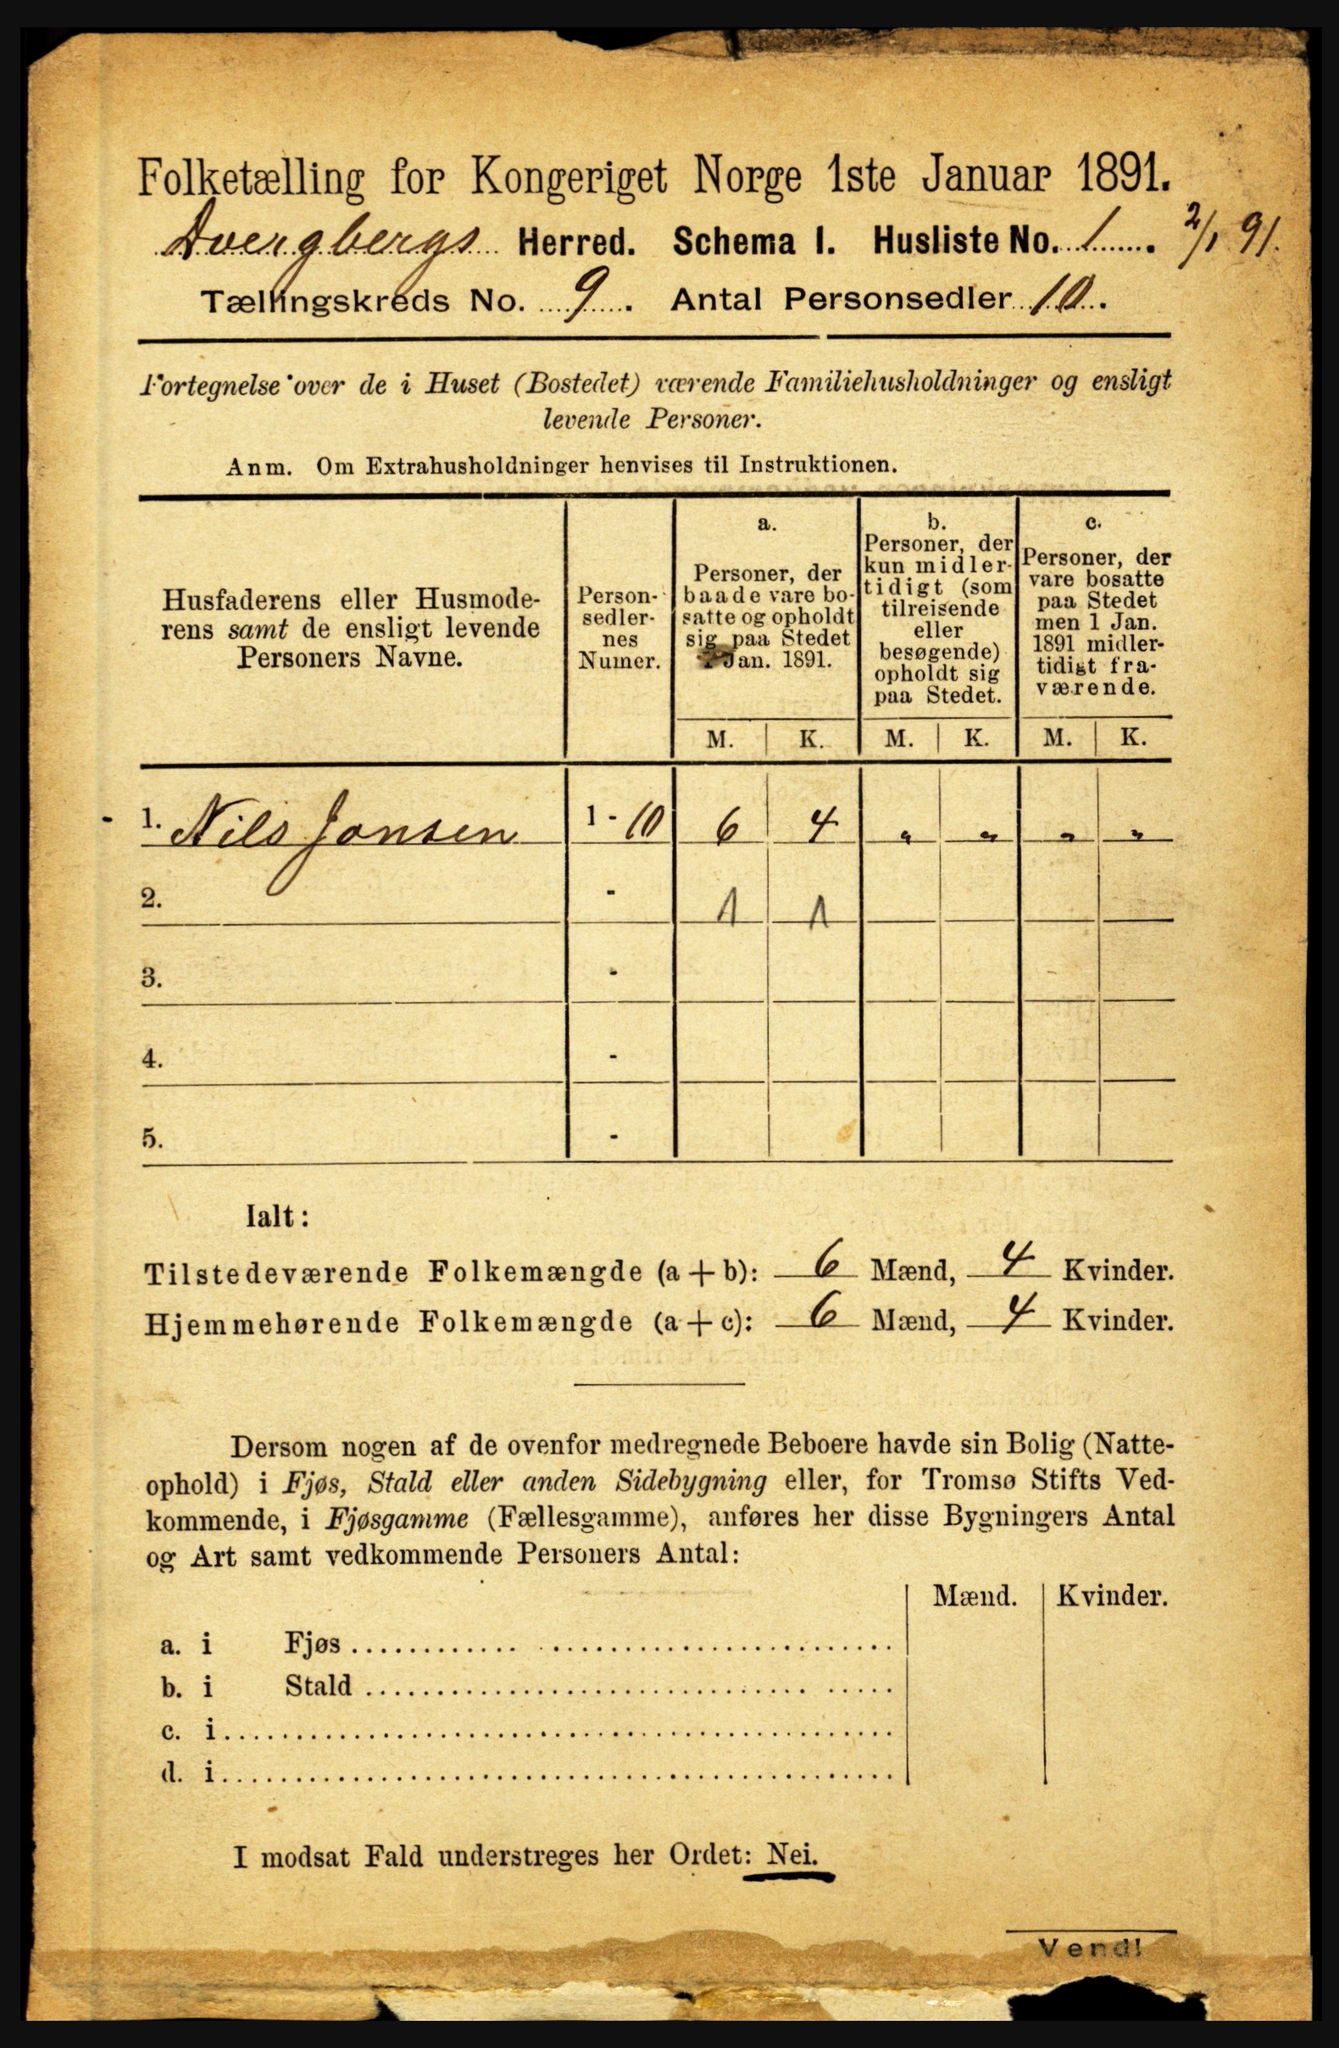 Folketælling for Kongeriget Norge 1ste Januar 1891.
Dvergbergs Herred. Schema I. Husliste No. 1. 2/1 91.
Tællingskreds No. 9. Antal Personsedler 10.
Fortegnelse over de i Huset (Bostedet) værende Familiehusholdninger og ensligt
levende Personer.
Anm. Om Extrahusholdninger henvises til Instruktionen.
Husfaderens eller Husmode-
rens samt de ensligt levende
Personers Navne.
Person-
sedler-
nes
Numer.
a.
Personer, der
baade vare bo-
satte og opholdt
sig paa Stedet
Jan. 1891.
b.
Personer, der
kun midler-
tidigt (som
tilreisende
eller
besøgende)
opholdt sig
paa Stedet.
c.
Personer, der
vare bosatte
paa Stedet
men 1 Jan.
1891 midler-
tidigt fra-
værende.
M. K. M. K. M. K.
1. Nils Jonsen 1 - 10 6 4 " " " "
2. - 1 1
3. -
4. -
5. -
Ialt:
Tilstedeværende Folkemængde (a + b): 6 Mænd, 4 Kvinder.
Hjemmehørende Folkemængde (a + c): 6 Mænd, 4 Kvinder.
Dersom nogen af de ovenfor medregnede Beboere havde sin Bolig (Natte-
ophold) i Fjøs, Stald eller anden Sidebygning eller, for Tromsø Stifts Ved-
kommende, i Fjøsgamme (Fællesgamme), anføres her disse Bygningers Antal
og Art samt vedkommende Personers Antal:
Mænd. Kvinder.
a. i Fjøs
b. i Stald
c. i
d. i
I modsat Fald understreges her Ordet: Nei.
Vend!